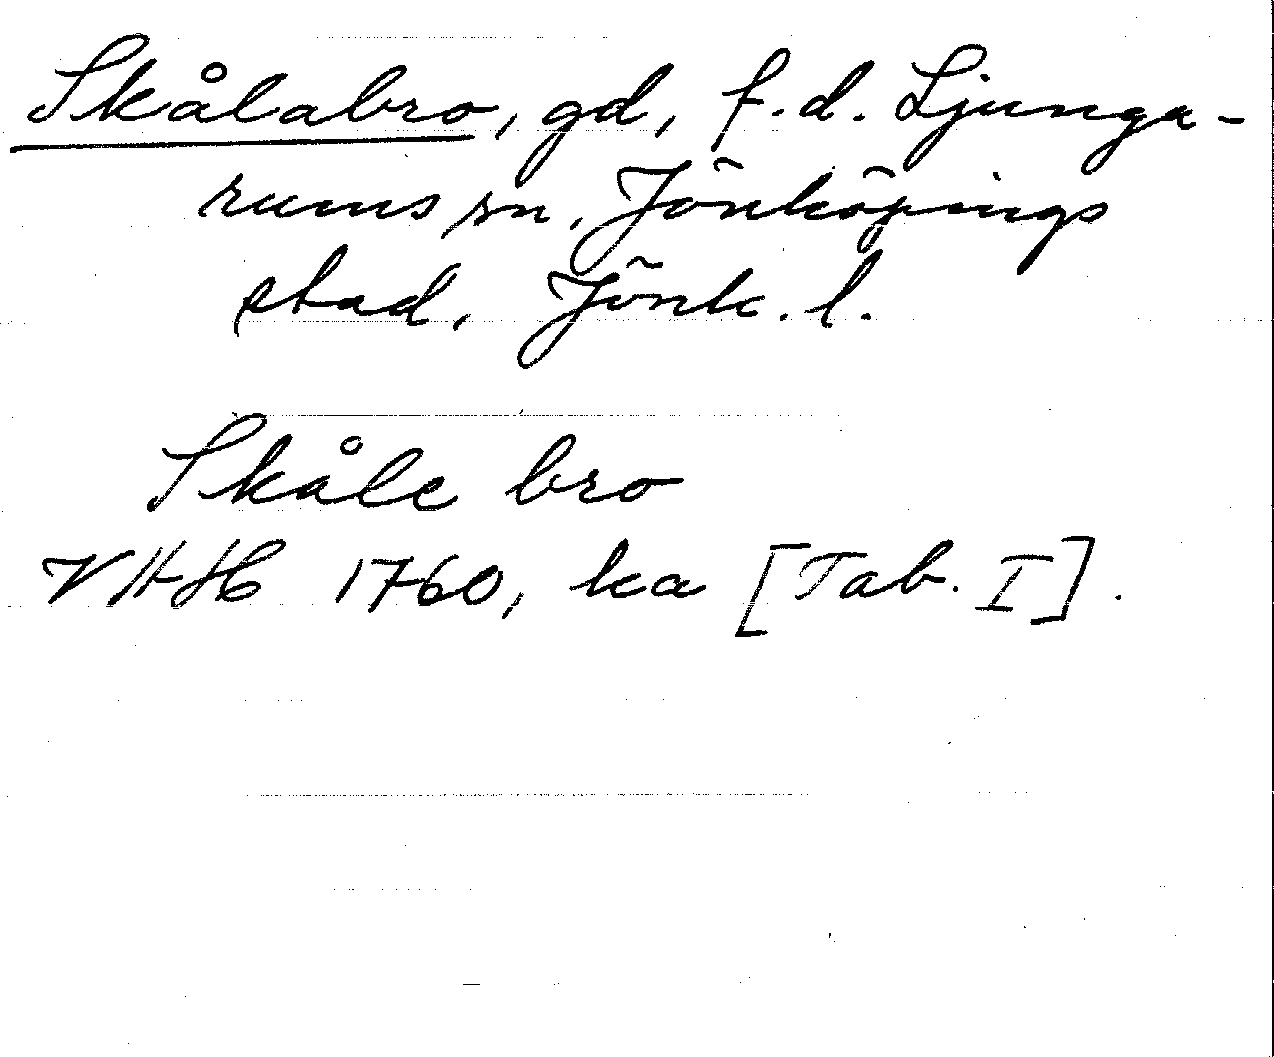 Skålabro, gd, f.d. Ljunga-
rums sn, Jönköpings
stad, Jönk. l.
Skåle bro
VHH 1760, ka [Tab. I].